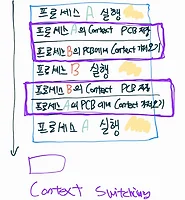 프로세스 A 실행
프로세스 A의 Context PCB 저장
프로세스 B의 PCB에서 Context 가져오기
프로세스 B 실행
프로세스 B의 Context PCB 저장
프로세스 A의 PCB에서 Context 가져오기
프로세스 A 실행
Context Switching